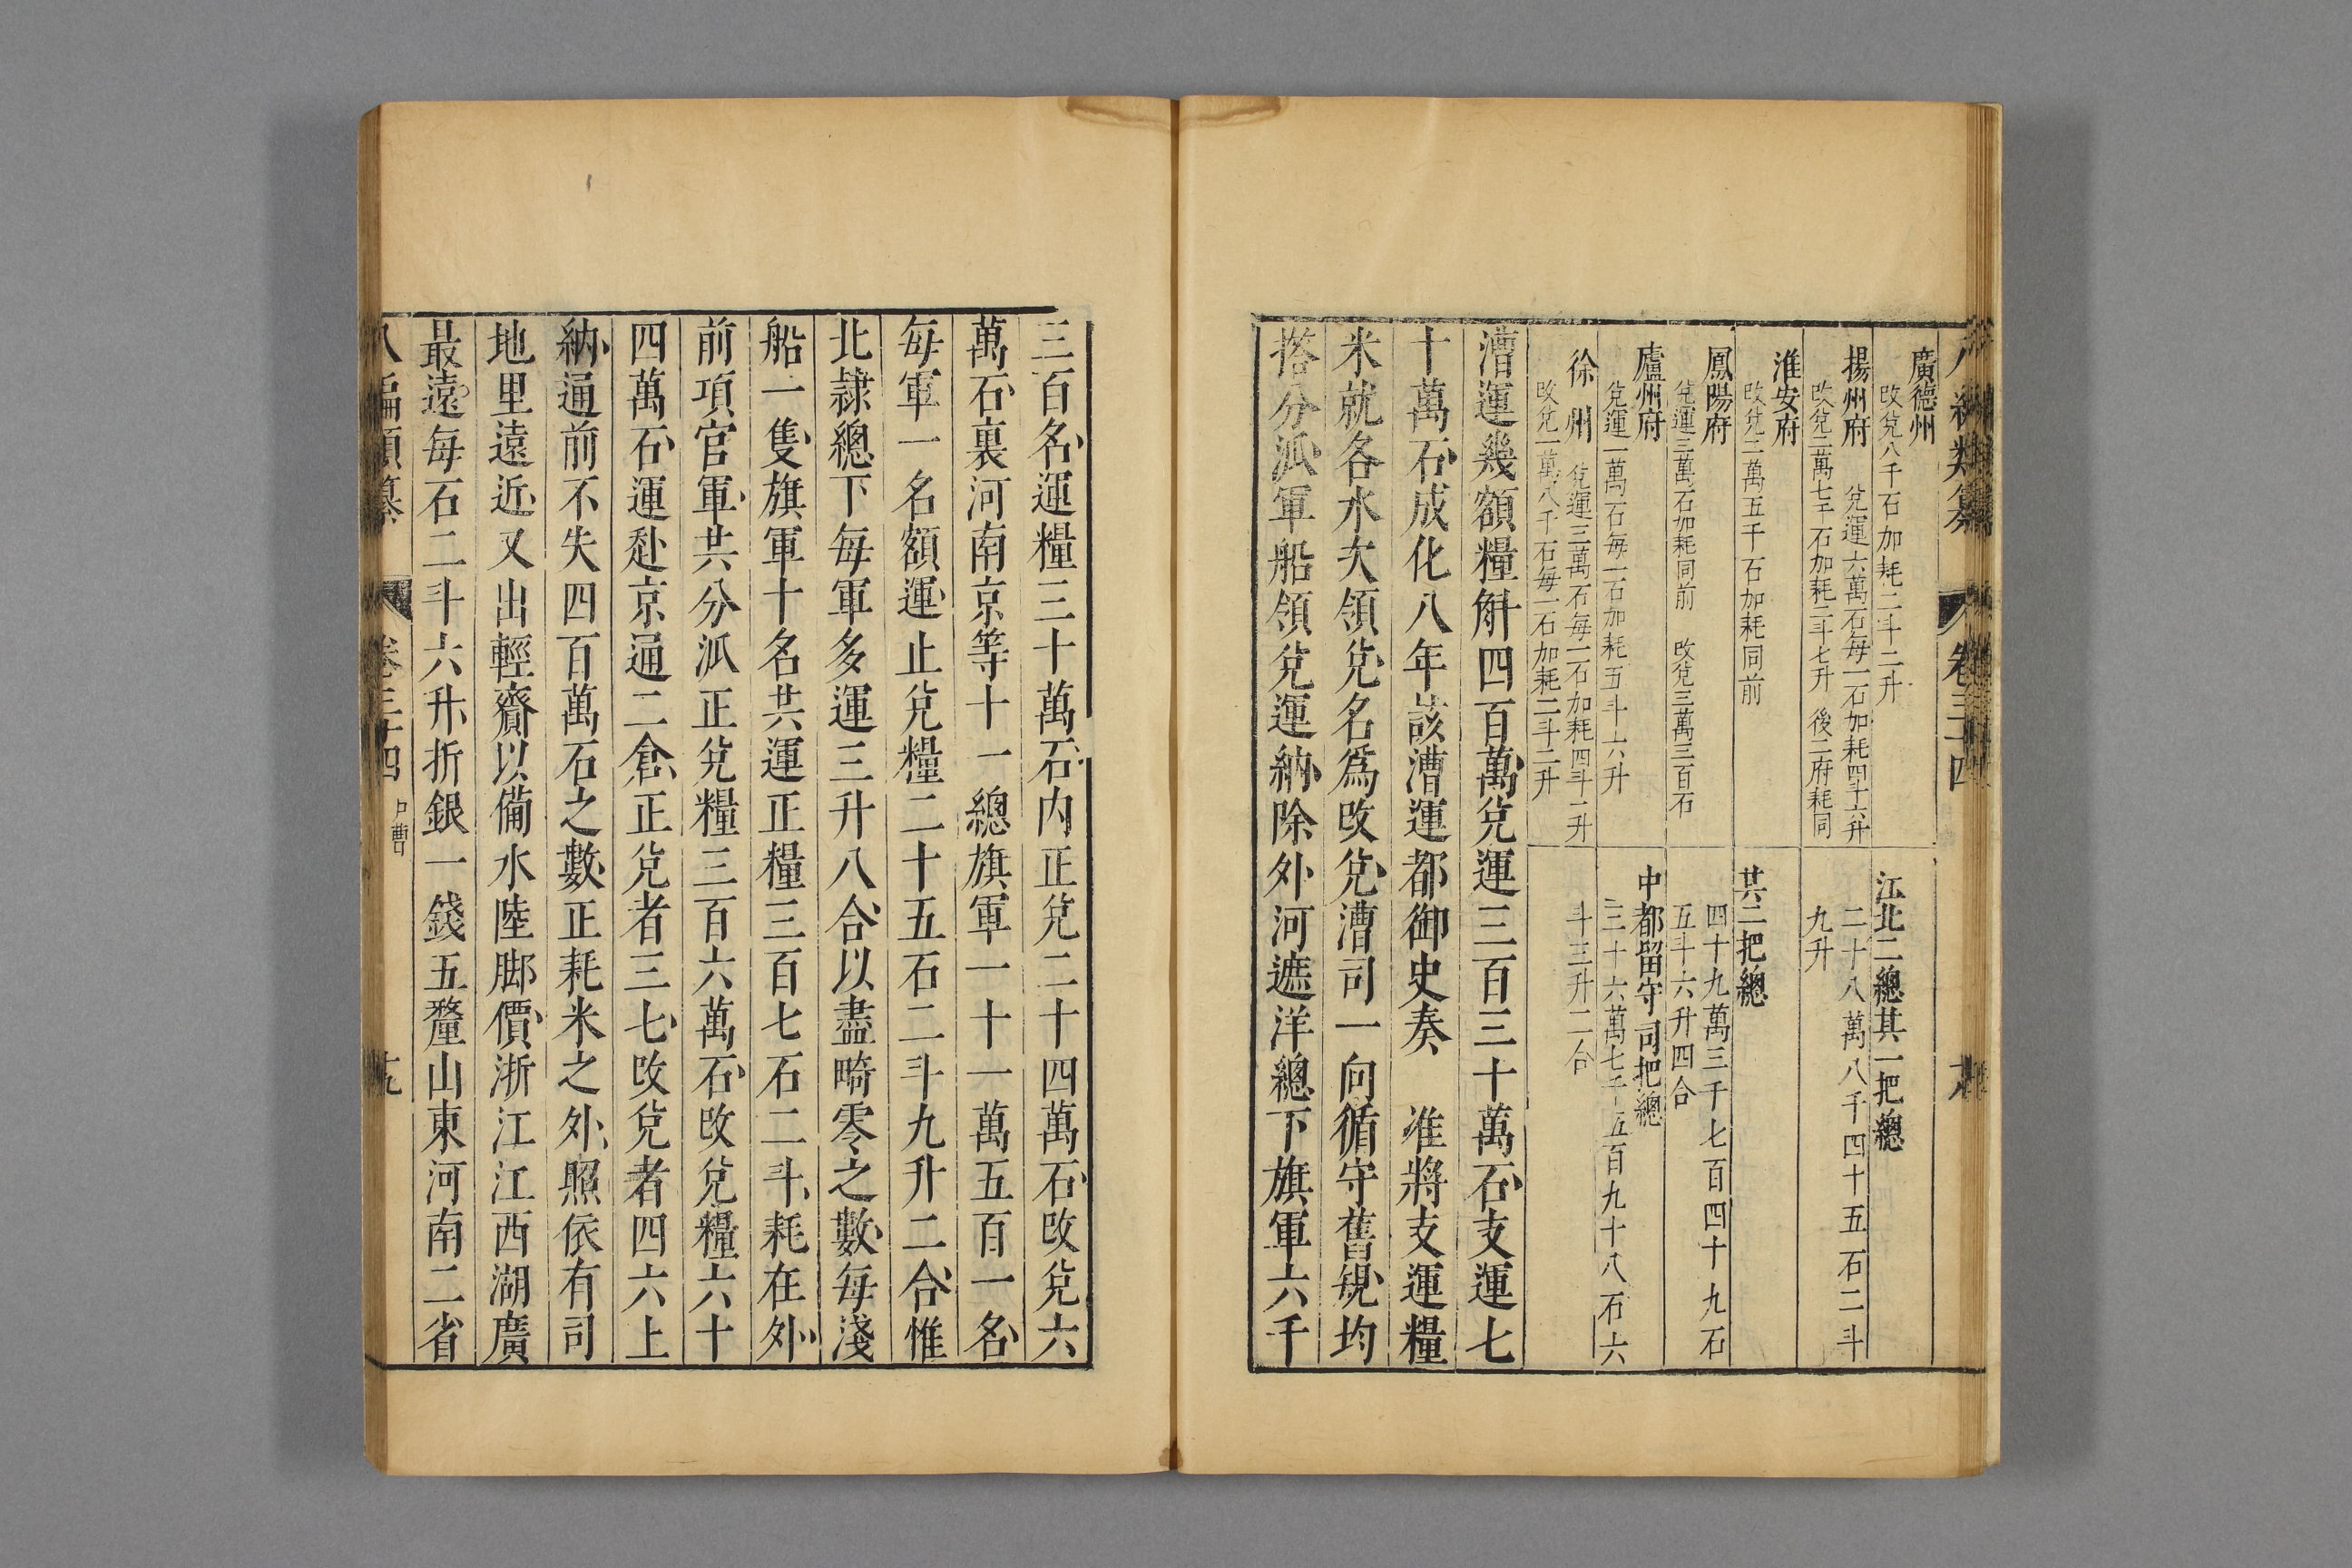 八編類纂 卷三十四
廣德州
改兌八千石加耗二斗二升
揚州府 兌運六萬石每一石加耗四斗六升
改兌二萬七千石加耗二斗七升 後二府耗同
淮安府
改兌二萬五千石加耗同前
鳳陽府
兌運三萬石加耗同前 改兌三萬三百石
廬州府
兌運一萬石每一石加耗五斗六升
徐州 兌運三萬石每一石加耗四斗一升
改兌一萬八千石每一石加耗二斗二升
江北二總其一把總
二十八萬八千四十五石二斗
九升
其二把總
四十九萬三千七百四十九石
五斗六升四合
中都留守司把總
三十六萬七千五百九十八石六
斗三升二合
漕運幾額糧斛四百萬兌運三百三十萬石支運七
十萬石成化八年該漕運都御史奏 准將支運糧
米就各水次領兌名爲改兌漕司一向循守舊規均
搭分派軍船領兌運納除外河遮洋總下旗軍六千
三百名運糧三十萬石內正兌二十四萬石改兌六
萬石裏河南京等十一總旗軍一十一萬五百一名
每軍一名額運止兌糧二十五石二斗九升二合惟
北隷總下每軍多運三升八合以盡畸零之數每淺
船一隻旗軍十名共運正糧三百七石二斗耗在外
前項官軍共分派正兌糧三百六萬石改兌糧六十
四萬石運赴京通二倉正兌者三七改兌者四六上
納通前不失四百萬石之數正耗米之外照依有司
地里遠近又出輕齎以備水陸脚價浙江江西湖廣
最遠每石二斗六升折銀一錢五釐山東河南二省
八編類纂 卷三十四 戶曹 十九